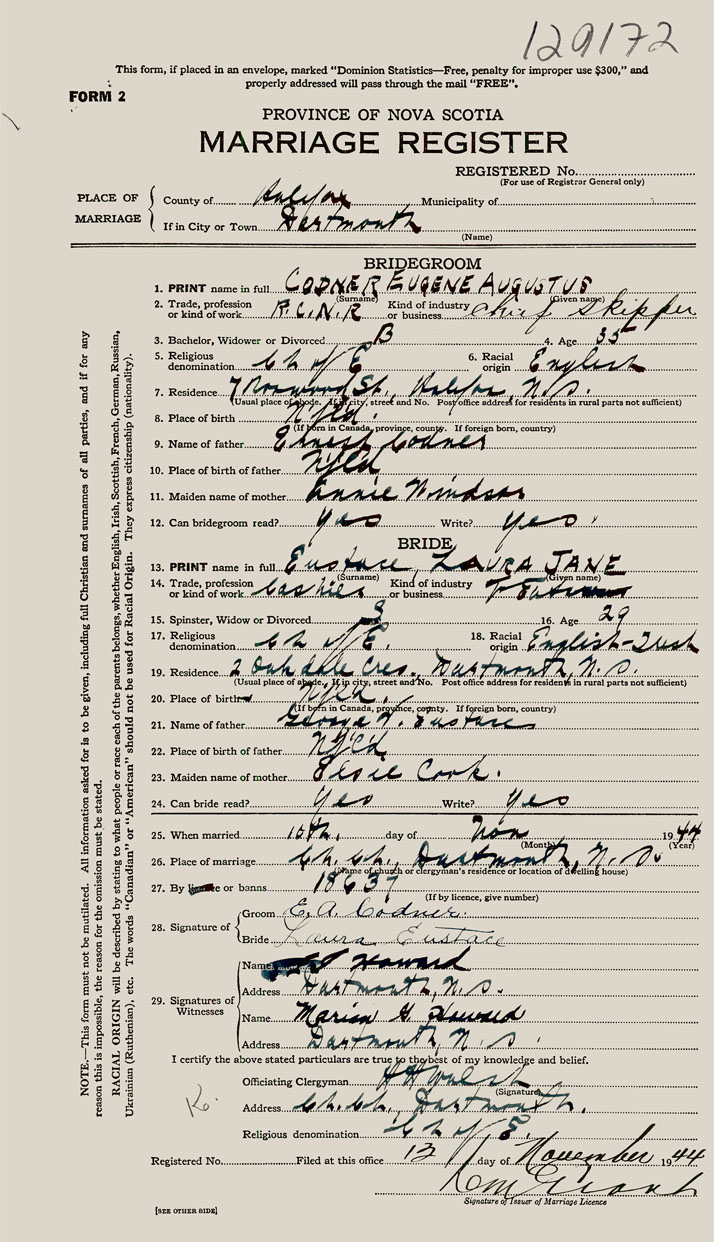 129172
This form, if placed in an envelope, marked “Dominion Statistics—Free, penalty for improper use $300,” and
properly addressed will pass through the mail “FREE”.
FORM 2
PROVINCE OF NOVA SCOTIA
MARRIAGE REGISTER
REGISTERED No.
(For use of Registrar General only)
PLACE OF MARRIAGE
County of Halifax Municipality of
If in City or Town Dartmouth
(Name)
BRIDEGROOM
1. PRINT name in full CODNER EUGENE AUGUSTUS
(Surname) (Given name)
2. Trade, profession or kind of work R.C.N.R Kind of industry or business Chief Skipper
3. Bachelor, Widower or Divorced B 4. Age 35
5. Religious denomination Ch of E 6. Racial origin English
7. Residence 7 St., Halifax, N.S.
(Usual place of abode. If in city, street and No. Post office address for residents in rural parts not sufficient)
8. Place of birth Nfld.
(If born in Canada, province, county. If foreign born, country)
9. Name of father Ernest Codner
10. Place of birth of father Nfld
11. Maiden name of mother Annie Windsor
12. Can bridegroom read? yes Write? yes
BRIDE
13. PRINT name in full Eustace, LAURA JANE
(Surname) (Given name)
14. Trade, profession or kind of work Cashier Kind of industry or business
15. Spinster, Widow or Divorced S 16. Age 29
17. Religious denomination Ch of E. 18. Racial origin English-Irish
19. Residence 2 Oakdale Cres., Dartmouth, N.S.
(Usual place of abode. If in city, street and No. Post office address for residents in rural parts not sufficient)
20. Place of birth Nfld.
(If born in Canada, province, county. If foreign born, country)
21. Name of father George Eustace
22. Place of birth of father Nfld
23. Maiden name of mother Elsie Cook.
24. Can bride read? yes Write? yes
25. When married 10th, day of Nov 1944
(Month) (Year)
26. Place of marriage Ch. Ch., Dartmouth, N.S.
(Name of church or clergyman's residence or location of dwelling house)
27. By licence or banns 18637
(If by licence, give number)
28. Signature of
Groom E.A. Codner.
Bride Laura Eustace
29. Signatures of Witnesses
Name Howard
Address Dartmouth, N.S.
Name Marion G. Howard
Address Dartmouth, N.S.
I certify the above stated particulars are true to the best of my knowledge and belief.
Officiating Clergyman Walsh
(Signature)
Address Ch. Ch., Dartmouth.
Religious denomination Ch of E.
Registered No. Filed at this office 13 day of November 1944
Signature of Issuer of Marriage Licence
[SEE OTHER SIDE]
NOTE.—This form must not be mutilated. All information asked for is to be given, including full Christian and surnames of all parties, and if for any
reason this is impossible, the reason for the omission must be stated.
RACIAL ORIGIN will be described by stating to what people or race each of the parents belongs, whether English, Irish, Scottish, French, German, Russian,
Ukrainian (Ruthenian), etc. The words “Canadian” or “American” should not be used for Racial Origin. They express citizenship (nationality).